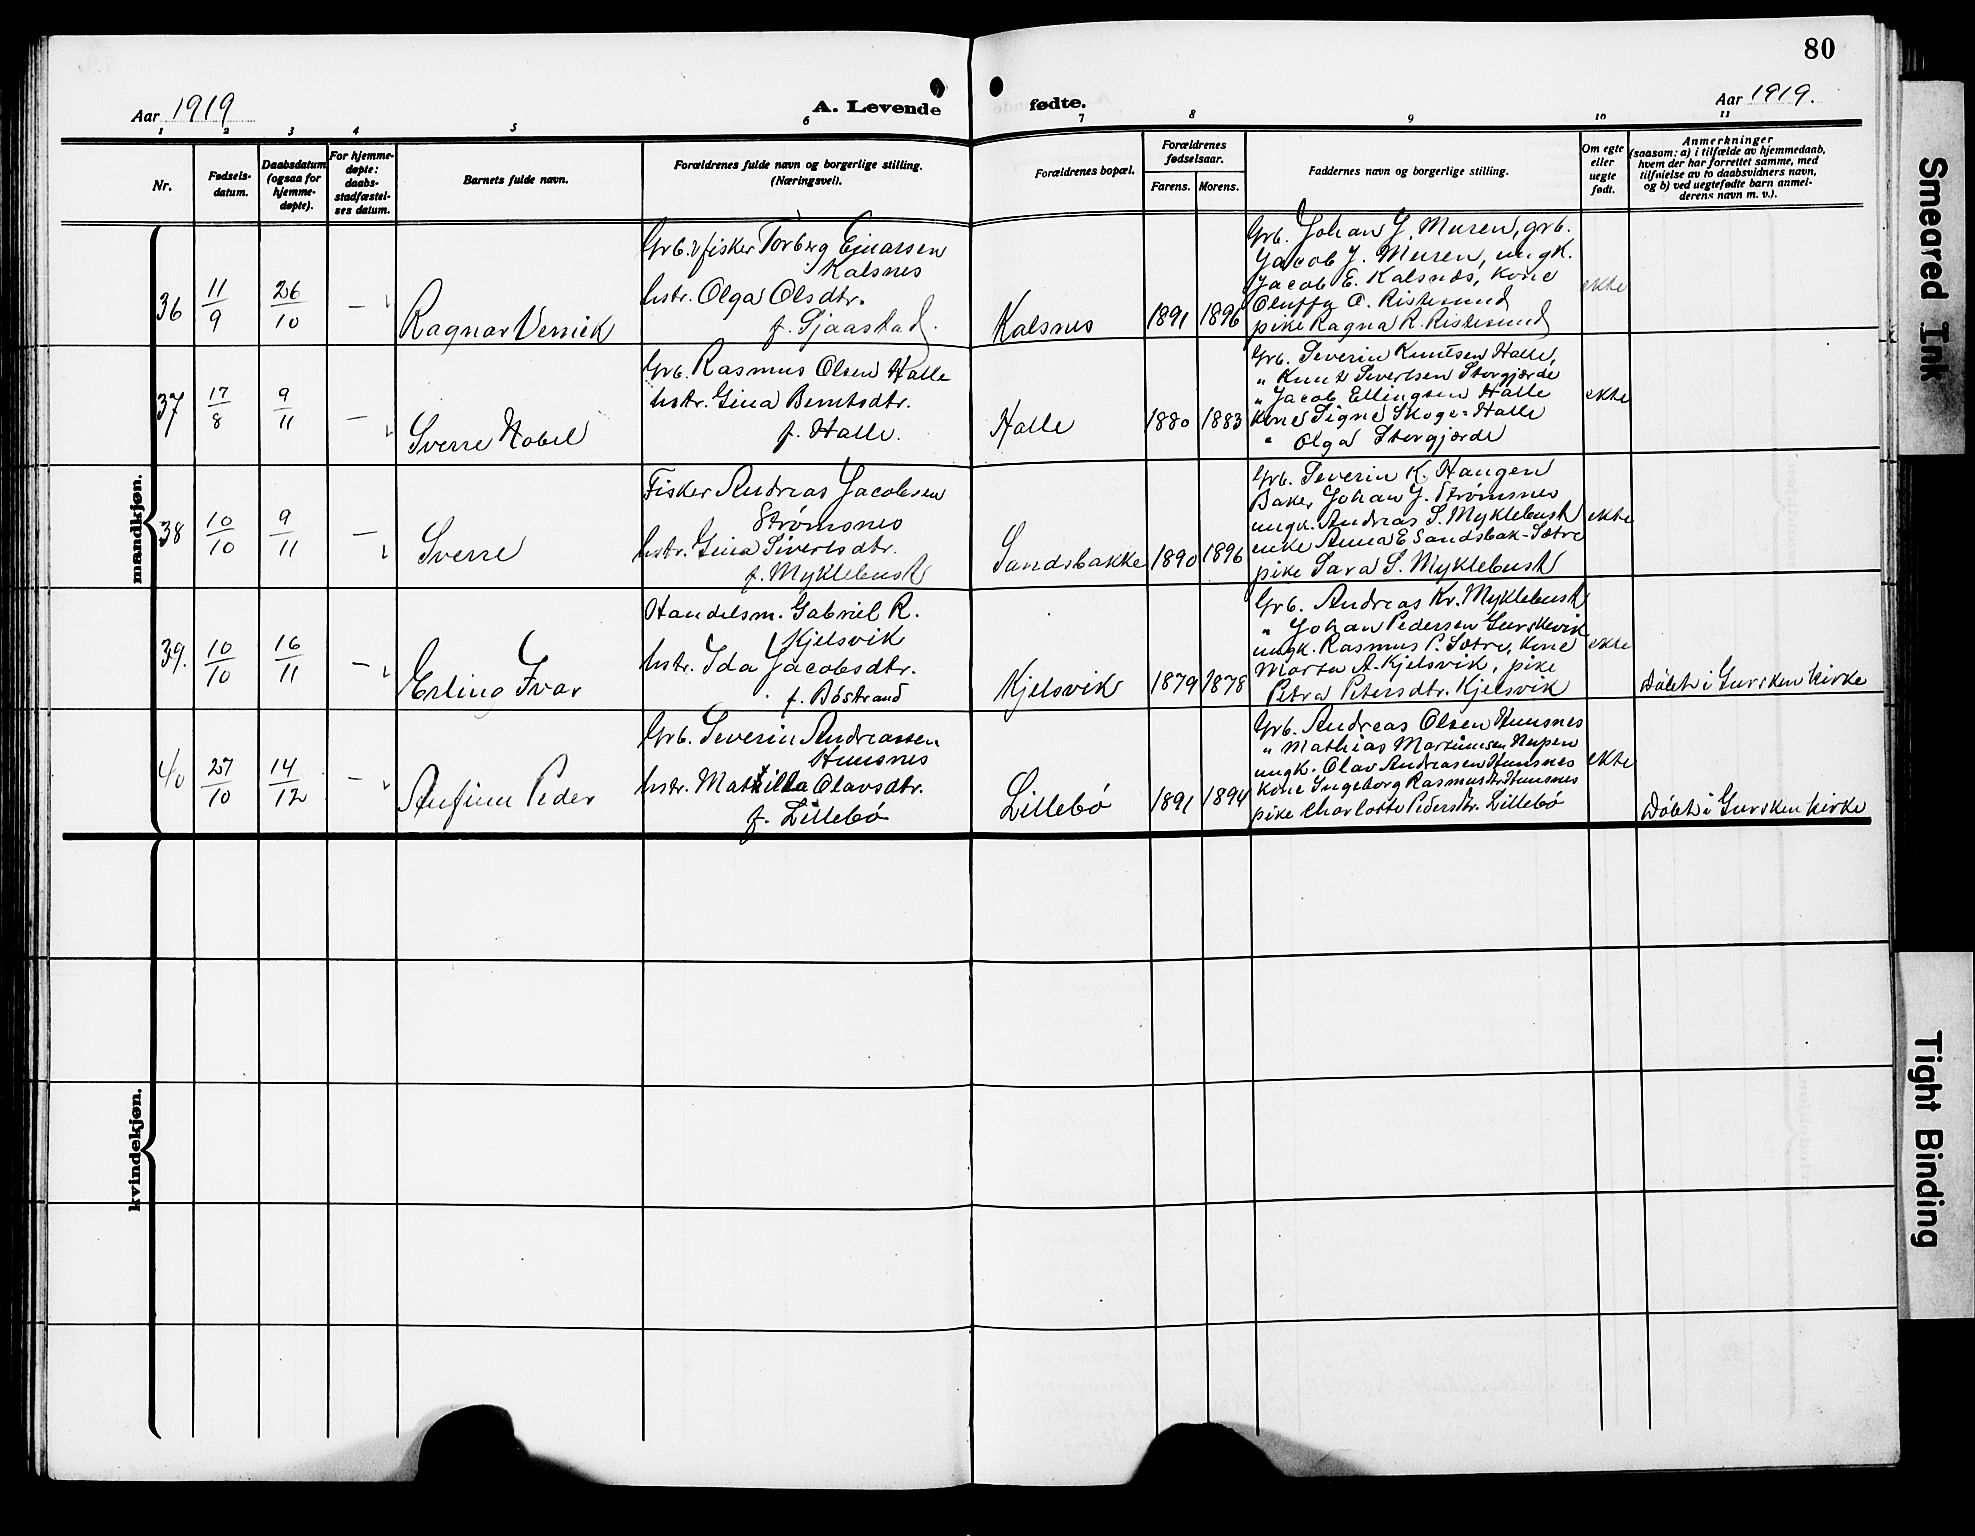 80
Aar 1919
A. Levende
fødte.
Aar 1919.
1 2 3 4 5 6 7 8 9 10 11
Nr.
Fødsels-
datum.
Daabsdatum
(ogsaa for
hjemme-
døpte).
For hjemme-
døpte:
daabs-
stadfæstel-
ses datum.
Barnets fulde navn.
Forældrenes fulde navn og borgerlige stilling.
(Næringsvei).
Forældrenes bopæl.
Forældrenes
fødselsaar.
Farens. Morens.
Faddernes navn og borgerlige stilling.
Om egte
eller
uegte
født.
Anmerkninger
(saasom: a) i tilfælde av hjemmedaab,
hvem der har forrettet samme, med
tilføielse av to daabsvidners navn,
og b) ved uegtefødte barn anmel-
derens navn m. v.).
mandkjøn.
36
11/9
26/10
—
Ragnar Vernik
Grb. & fisker Torberg Ejnarssen
Kalsnes
hstr. Olga Olsdtr.
f. Sjaastad.
Kalsnes
1891
1896
Grb. Johan J. Muren, grb.
Jacob J. Muren, ungk.
Jacob E. Kalsnæs, kone
Oluffa O. Ristesund
pike Ragna R. Ristesund
ekte
37
17/8
9/11
—
Sverre Nobel
Grb. Rasmus Olsen Halle
hstr. Gina Berntsdtr.
f. Halle.
Halle
1880
1883
Grb. Severin Knutsen Halle,
" Knut Sivertsen Storgjærde
" Jacob Ellingsen Halle
Kone Signe Skoge=Halle
" Olga Storgjærde
ekte
38
10/10
9/11
—
Sverre
Fisker Andreas Jacobsen
Strømsnes
hstr. Gina Sivertsdtr.
f. Myklebust
Sandsbakke
1890
1896
Grb. Severin K. Haugen
Baker Johan J. Strømsnes
ungk. Andreas S. Myklebust
enke Anna E Sandsbak-Sætre
pike Sara S. Myklebust
ekte
39.
10/10
16/11
—
Erling Ivar
Handelsm. Gabriel R.
Kjelsvik
hstr. Ida Jacobsdtr.
f. Bøstrand
Kjelsvik
1879
1878
Grb. Andreas Kr. Myklebust
" Johan Pedersen Gurskevik
ungk. Rasmus P. Sætre, kone
Marta A. Kjelsvik, pike
Petra Petersdtr. Kjelsvik
ekte
Døbt i Gursken kirke
40
27/10
14/12
—
Anfinn Peder
Grb. Severin Andreassen
Hunsnes
hstr. Mathilda Olavsdtr.
f. Lillebø
Lillebø
1891
1894
Grb. Andreas Olsen Hunsnes
" Mathias Martinusen Nupen
ungk. Olav Andreasen Hunsnes
Kone Ingeborg Rasmusdtr Hunsnes
pike Charlotte Pedersdtr. Lillebø
ekte
Døbt i Gursken kirke
kvindekjøn.
Smeared Ink
Tight Binding